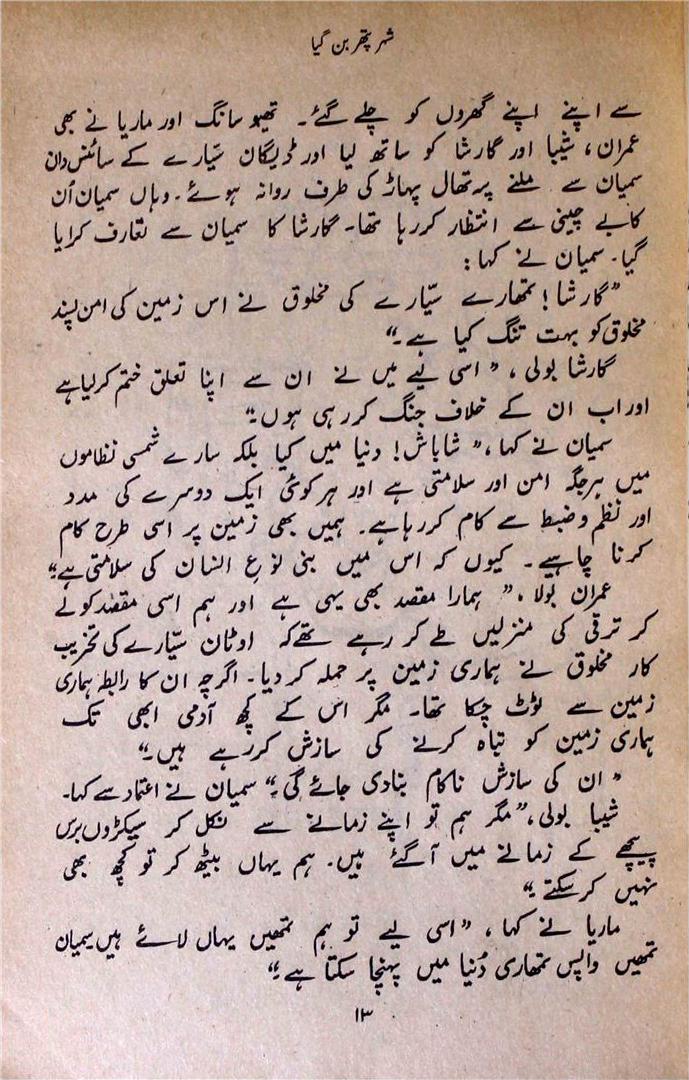 شہر پتھر بن گیا
سے اپنے اپنے گھروں کو چلے گئے۔ تھیو سانگ اور ماریا نے بھی
عمران، شیبا اور گارشا کو ساتھ لیا اور ڈیگان سیّارے کے سائنس دان
سمیان سے ملنے پرتھال پہاڑ کی طرف روانہ ہوئے۔ وہاں سمیان اُن
کا بے چینی سے انتظار کر رہا تھا۔ گارشا کا سمیان سے تعارف کرایا
گیا۔ سمیان نے کہا:
"گارشا! تمھارے سیّارے کی مخلوق نے اس زمین کی امن پسند
مخلوق کو بہت تنگ کیا ہے۔"
گارشا بولی، "اسی لیے میں نے ان سے اپنا تعلق ختم کر لیا ہے
اور اب ان کے خلاف جنگ کر رہی ہوں۔"
سمیان نے کہا، "شاباش! دنیا میں کیا بلکہ سارے شمسی نظاموں
میں ہر جگہ امن اور سلامتی ہے اور ہر کوئی ایک دوسرے کی مدد
اور نظم و ضبط سے کام کر رہا ہے۔ ہمیں بھی زمین پر اسی طرح کام
کرنا چاہیے۔ کیوں کہ اس میں بنی نوعِ انسان کی سلامتی ہے۔"
عمران بولا، "ہمارا مقصد بھی یہی ہے اور ہم اسی مقصد کو لے
کر ترقی کی منزلیں طے کر رہے تھے کہ اوٹان سیّارے کی تخریب
کار مخلوق نے ہماری زمین پر حملہ کر دیا۔ اگرچہ ان کا رابطہ ہماری
زمین سے ٹوٹ چکا تھا۔ مگر اس کے کچھ آدمی ابھی تک
ہماری زمین کو تباہ کرنے کی سازش کر رہے ہیں۔"
"ان کی سازش ناکام بنا دی جائے گی۔" سمیان نے اعتماد سے کہا۔
شیبا بولی، "مگر ہم تو اپنے زمانے سے نکل کر سیکڑوں برس
پیچھے کے زمانے میں آ گئے ہیں۔ ہم یہاں بیٹھ کر تو کچھ بھی
نہیں کر سکتے۔"
ماریا نے کہا، "اسی لیے تو ہم تمھیں یہاں لائے ہیں سمیان
تمھیں واپس تمھاری دُنیا میں پہنچا سکتا ہے۔"
۱۳